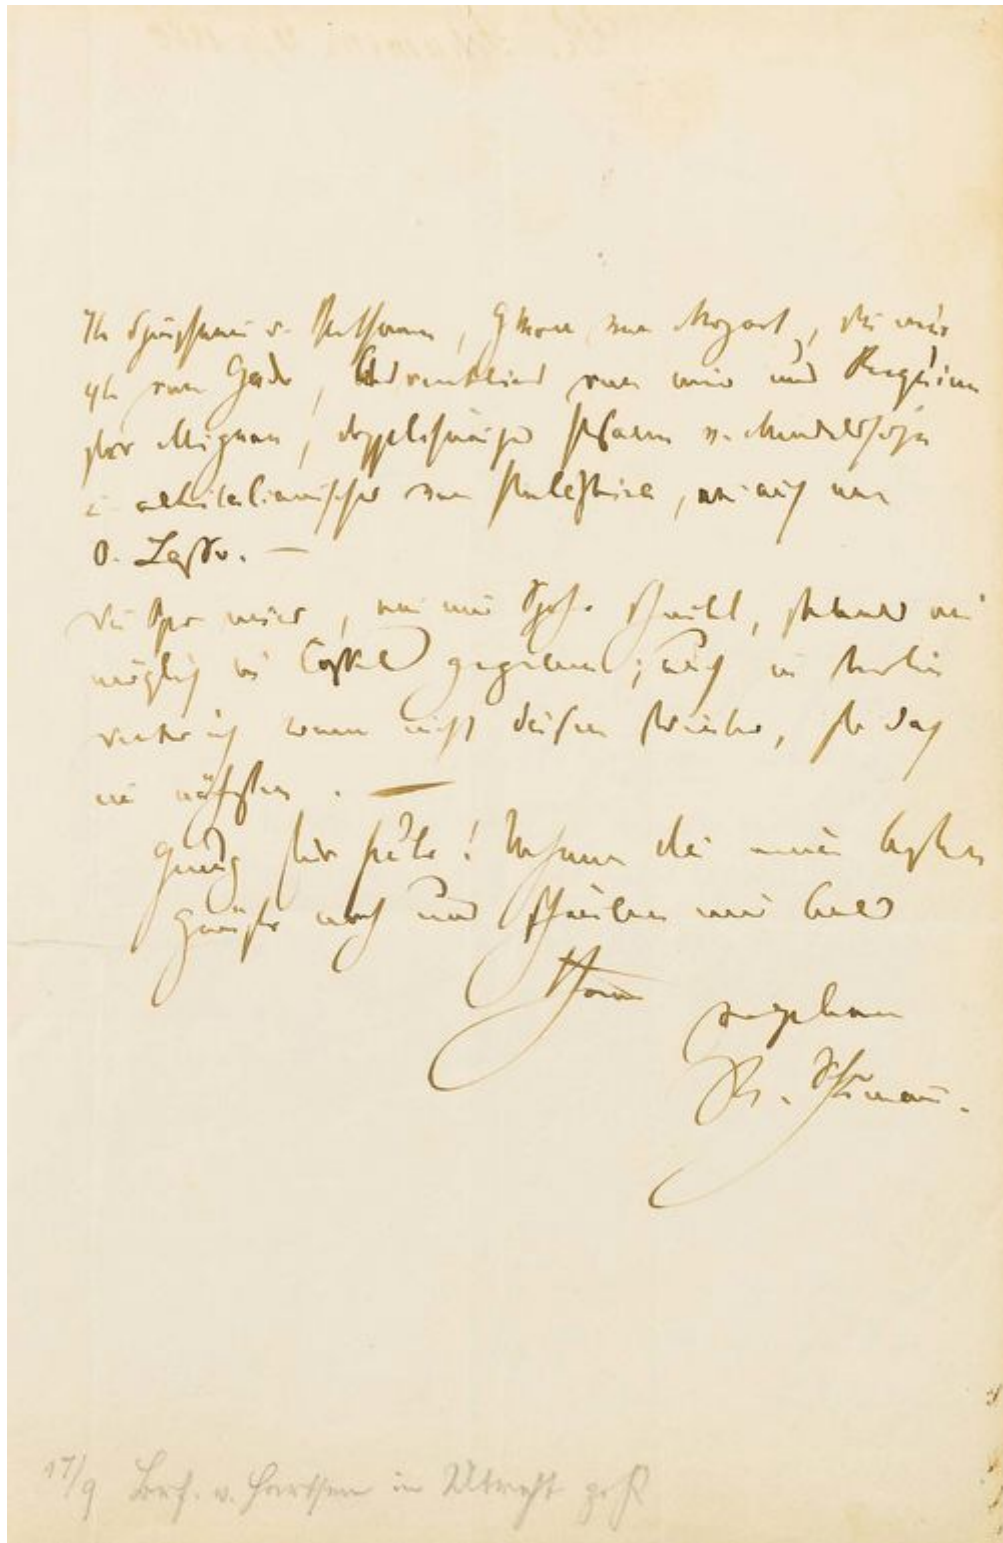 v. Beethoven, G moll von Mozart, die
von Gade, Adventlied von mir und Requiem
für Mignon, doppelchörige Psalm v. Mendelssohn
u. altitalienisches von Palestrina, wie auch von
O. Lasso. —
Die Oper wird, wie mir Spohr schreibt, sobald wie
möglich in Cassel gegeben; auch in Berlin
wenn nicht diesen Winter, so doch
im nächsten. —
Genug für heute! Nehmen Sie meine besten
Grüße noch und schreiben mir bald
Ihrem
ergebenen
R. Schumann.
17/9 v. in Utrecht